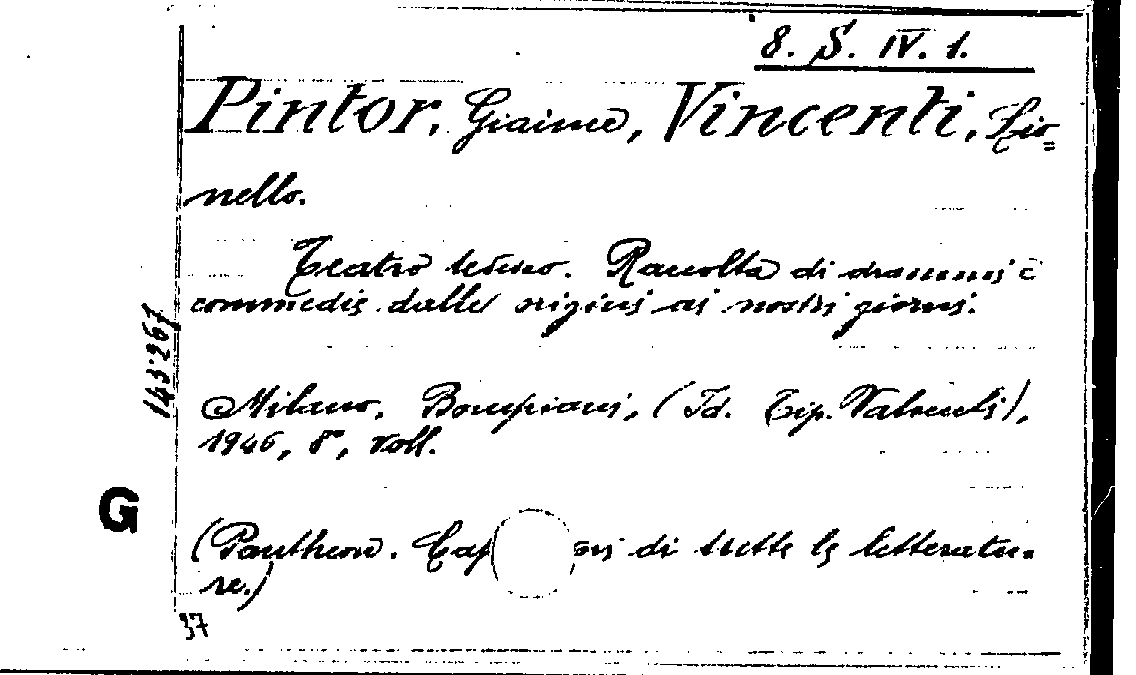 8. S. IV. 1.
Pintor, Giaime, Vincenti, Lio=
nello.
Teatro tedesco. Raccolta di drammi e
commedie dalle origini ai nostri giorni.
143267
Milano, Bompiani, (Id. Tip. Valsecchi),
1946, 8°, voll.
G
(Pantheon. Cap ori di tutte le letteratu=
re.)
37